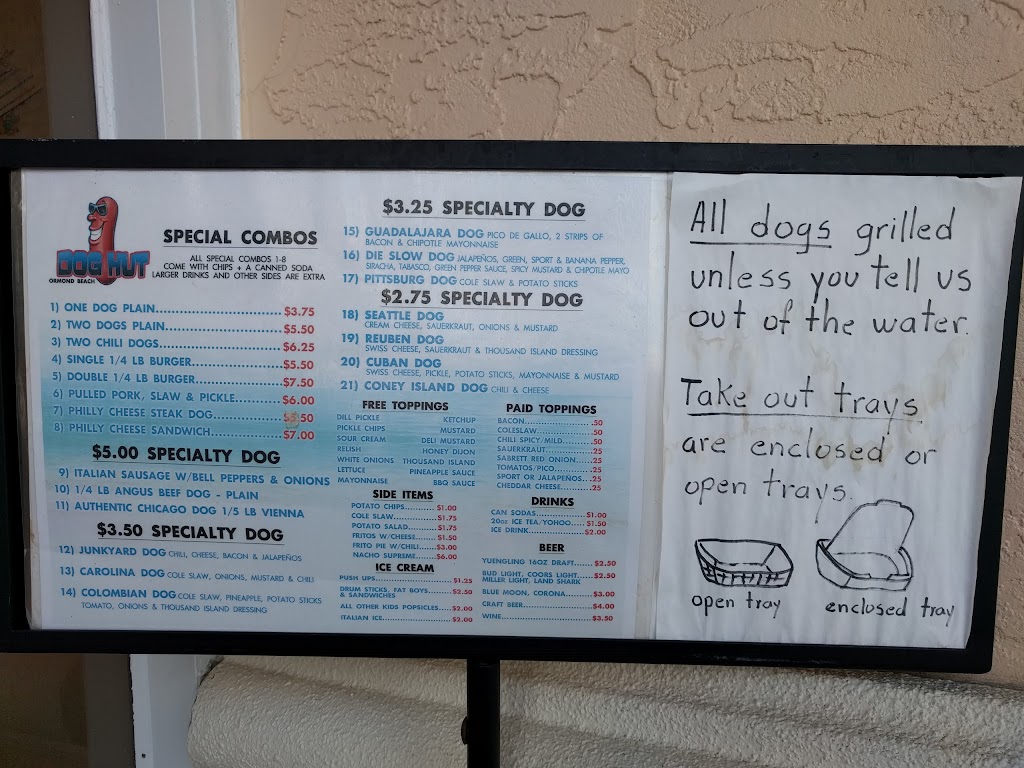 DOG HUT
ORMOND BEACH
SPECIAL COMBOS
ALL SPECIAL COMBOS 1-8
COME WITH CHIPS + A CANNED SODA
LARGER DRINKS AND OTHER SIDES ARE EXTRA
1) ONE DOG PLAIN........ $3.75
2) TWO DOGS PLAIN........ $5.50
3) TWO CHILI DOGS........ $6.25
4) SINGLE 1/4 LB BURGER........ $5.50
5) DOUBLE 1/4 LB BURGER........ $7.50
6) PULLED PORK, SLAW & PICKLE........ $6.00
7) PHILLY CHEESE STEAK DOG........ .50
8) PHILLY CHEESE SANDWICH........ $7.00
$5.00 SPECIALTY DOG
9) ITALIAN SAUSAGE W/BELL PEPPERS & ONIONS
10) 1/4 LB ANGUS BEEF DOG - PLAIN
11) AUTHENTIC CHICAGO DOG 1/5 LB VIENNA
$3.50 SPECIALTY DOG
12) JUNKYARD DOG CHILI, CHEESE, BACON & JALAPEÑOS
13) CAROLINA DOG COLE SLAW, ONIONS, MUSTARD & CHILI
14) COLOMBIAN DOG COLE SLAW, PINEAPPLE, POTATO STICKS
TOMATO, ONIONS & THOUSAND ISLAND DRESSING
$3.25 SPECIALTY DOG
15) GUADALAJARA DOG PICO DE GALLO, 2 STRIPS OF
BACON & CHIPOTLE MAYONNAISE
16) DIE SLOW DOG JALAPEÑOS, GREEN, SPORT & BANANA PEPPER,
SIRACHA, TABASCO, GREEN PEPPER SAUCE, SPICY MUSTARD & CHIPOTLE MAYO
17) PITTSBURG DOG COLE SLAW & POTATO STICKS
$2.75 SPECIALTY DOG
18) SEATTLE DOG
CREAM CHEESE, SAUERKRAUT, ONIONS & MUSTARD
19) REUBEN DOG
SWISS CHEESE, SAUERKRAUT & THOUSAND ISLAND DRESSING
20) CUBAN DOG
SWISS CHEESE, PICKLE, POTATO STICKS, MAYONNAISE & MUSTARD
21) CONEY ISLAND DOG CHILI & CHEESE
FREE TOPPINGS
DILL PICKLE KETCHUP
PICKLE CHIPS MUSTARD
SOUR CREAM DELI MUSTARD
RELISH HONEY DIJON
WHITE ONIONS THOUSAND ISLAND
LETTUCE PINEAPPLE SAUCE
MAYONNAISE BBQ SAUCE
SIDE ITEMS
POTATO CHIPS........ $1.00
COLE SLAW........ $1.75
POTATO SALAD........ $1.75
FRITOS W/CHEESE........ $1.50
FRITO PIE W/CHILI........ $3.00
NACHO SUPREME........ $6.00
ICE CREAM
PUSH UPS........ $1.25
DRUM STICKS, FAT BOYS........ $2.50
& SANDWICHES
ALL OTHER KIDS POPSICLES........ $2.00
ITALIAN ICE........ $2.00
PAID TOPPINGS
BACON........ .50
COLESLAW........ .50
CHILI SPICY/MILD........ .50
SAUERKRAUT........ .25
SABRETT RED ONION........ .25
TOMATOS/PICO........ .25
SPORT OR JALAPENOS...25
CHEDDAR CHEESE........ .25
DRINKS
CAN SODAS........ $1.00
20oz ICE TEA/YOHOO..... $1.50
ICE DRINK........ $2.00
BEER
YUENGLING 16OZ DRAFT....... $2.50
BUD LIGHT, COORS LIGHT......$2.50
MILLER LIGHT, LAND SHARK
BLUE MOON, CORONA........ $3.00
CRAFT BEER........ $4.00
WINE........ $3.50
All dogs grilled
unless you tell us
out of the water.
Take out trays
are enclosed or
open trays.
open tray
enclosed tray